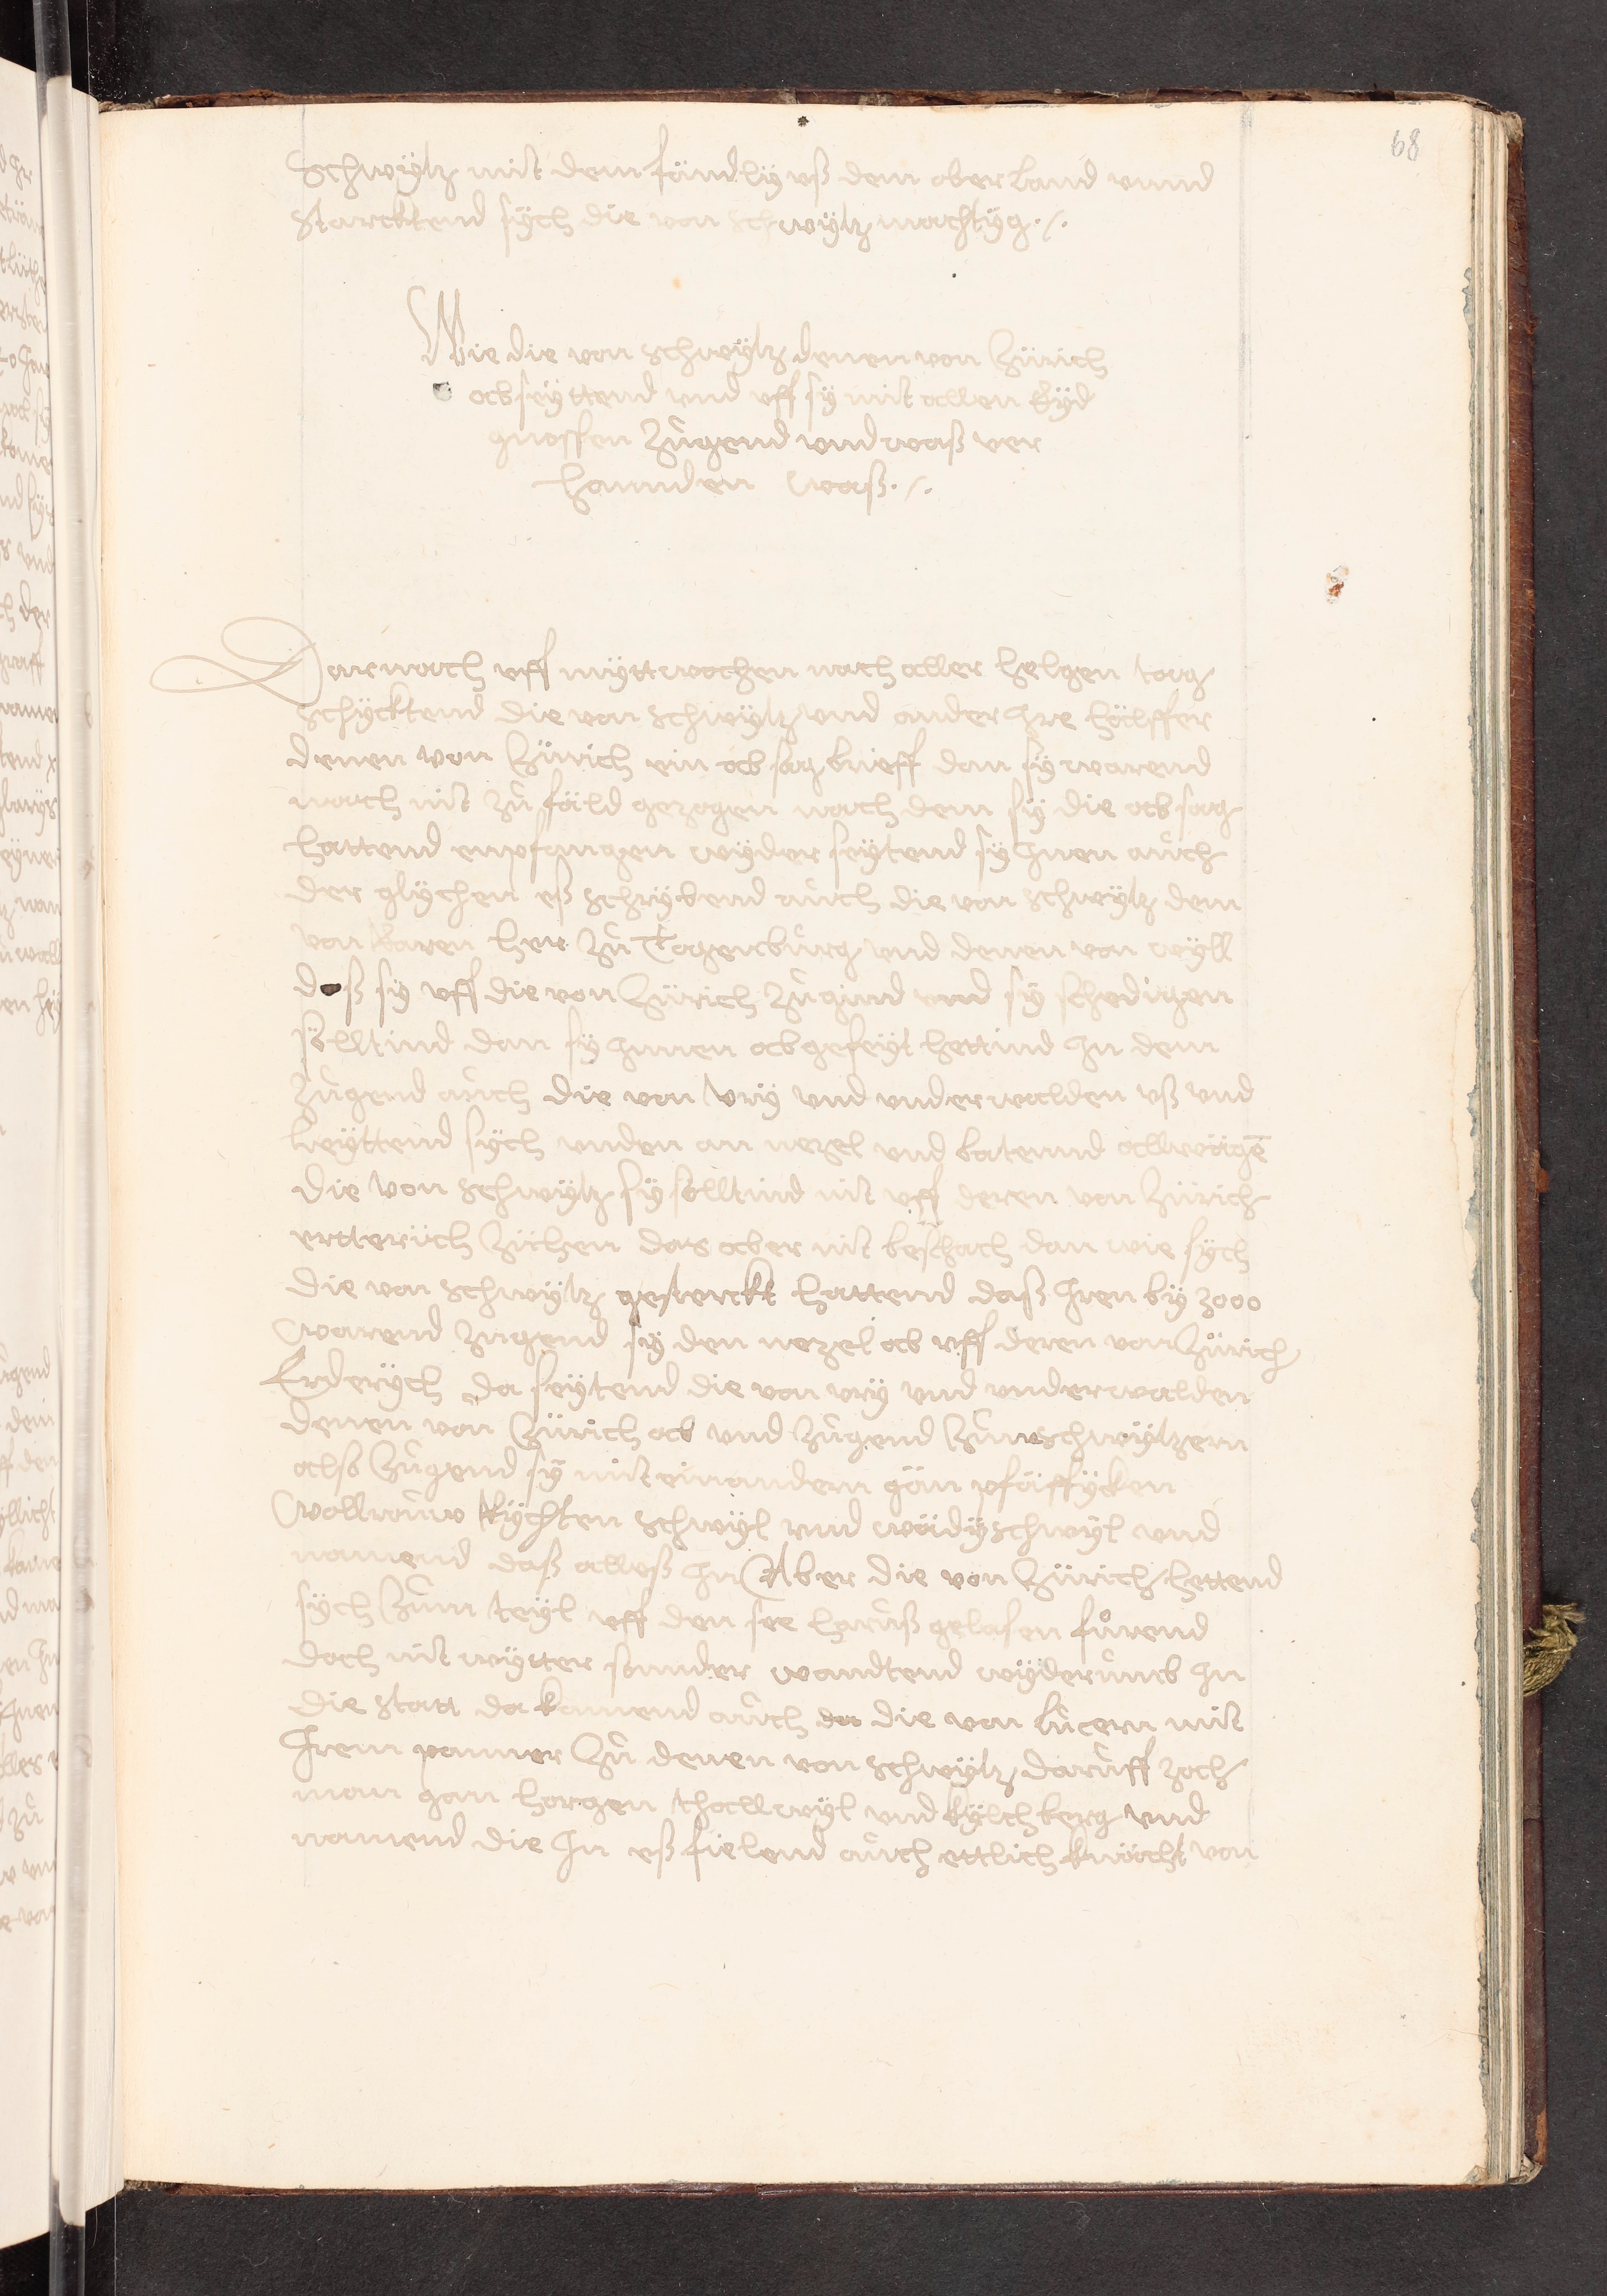 68
Schwÿtz mit dem fändlÿ uß dem oberland vnnd
starcktend sÿch die von schwÿtz machtÿg ·/.
Wie die von schwÿtz denen von Zürich
absÿttend vnd vff sÿ mit allen Eÿd
gnossen zůgend vnd waß ver
hannden waß ·/.
Darnach vff mÿttwochen nach aller helgen tag
schÿcktend die von schwÿtz vnd ander jre hälffer
denen von Zürich ein absag brieff dan sÿ warend
nach nit zů fäld gezogen nach dem sÿ die absag
hattend empfangen wÿder seÿtend sÿ jnen aůch
der glÿchen eß schrÿbend aůch die von schwÿtz dem
von Raren her zů Togenbůrg vnd denen von wÿll
daß sÿ vff die von Zürich zůgind vnd sÿ schedigen
sölltind dan sÿ jnnen abgeseÿt hettind jn dem
zůgend aůch die von Vrÿ vnd vnderwalden vß vnd
leÿttend sÿch vnden an nezel vnd batennd allwägē
die von schwÿtz sÿ sölltind nit vff deren von Zürich
ertterich züchen das aber nit beschach dan wie sÿch
die von schwÿtz gesterckt hattend daß jren bÿ 3000
warend zůgend sÿ den nezel ab vff deren von Zürich
Erderÿch da seÿtend die von vrÿ vnd vnderwalden
denen von Zürich ab vnd zůgend zůn schwÿtzern
also zůgend sÿ mit einandern gän pfäffÿcken
wollrouw Rÿchtenschwÿl vnd wädÿschwÿl vnd
namend daß alleß jn Aber die von Zürich hettend
sÿch zům teÿl vff den see haruß gelasen fůrend
doch nit wÿtter sunder wandtend wÿderůmb jn
die statt da kamend aůch da die von lůcern mit
jrem panner zů denen von schwÿtz darůff zoch
man gan horgen thallwÿl vnd kÿlchberg vnd
namend die jn eß fielend aůch ettlich knächt von